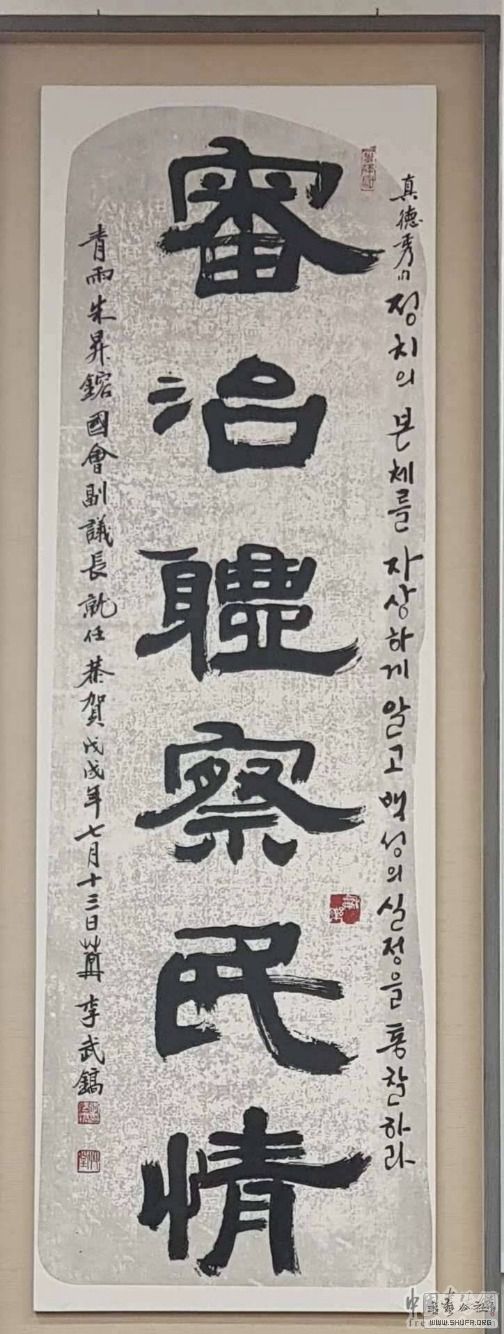 真德秀 정치의 본체를 자상하게 알고 백성의 실정을 통찰하라
審治軆察民情
青雨朱昇鎔國會副議長就任恭賀戊戌年七月十三日 李武鎬
WWW.SHUFR.ORG